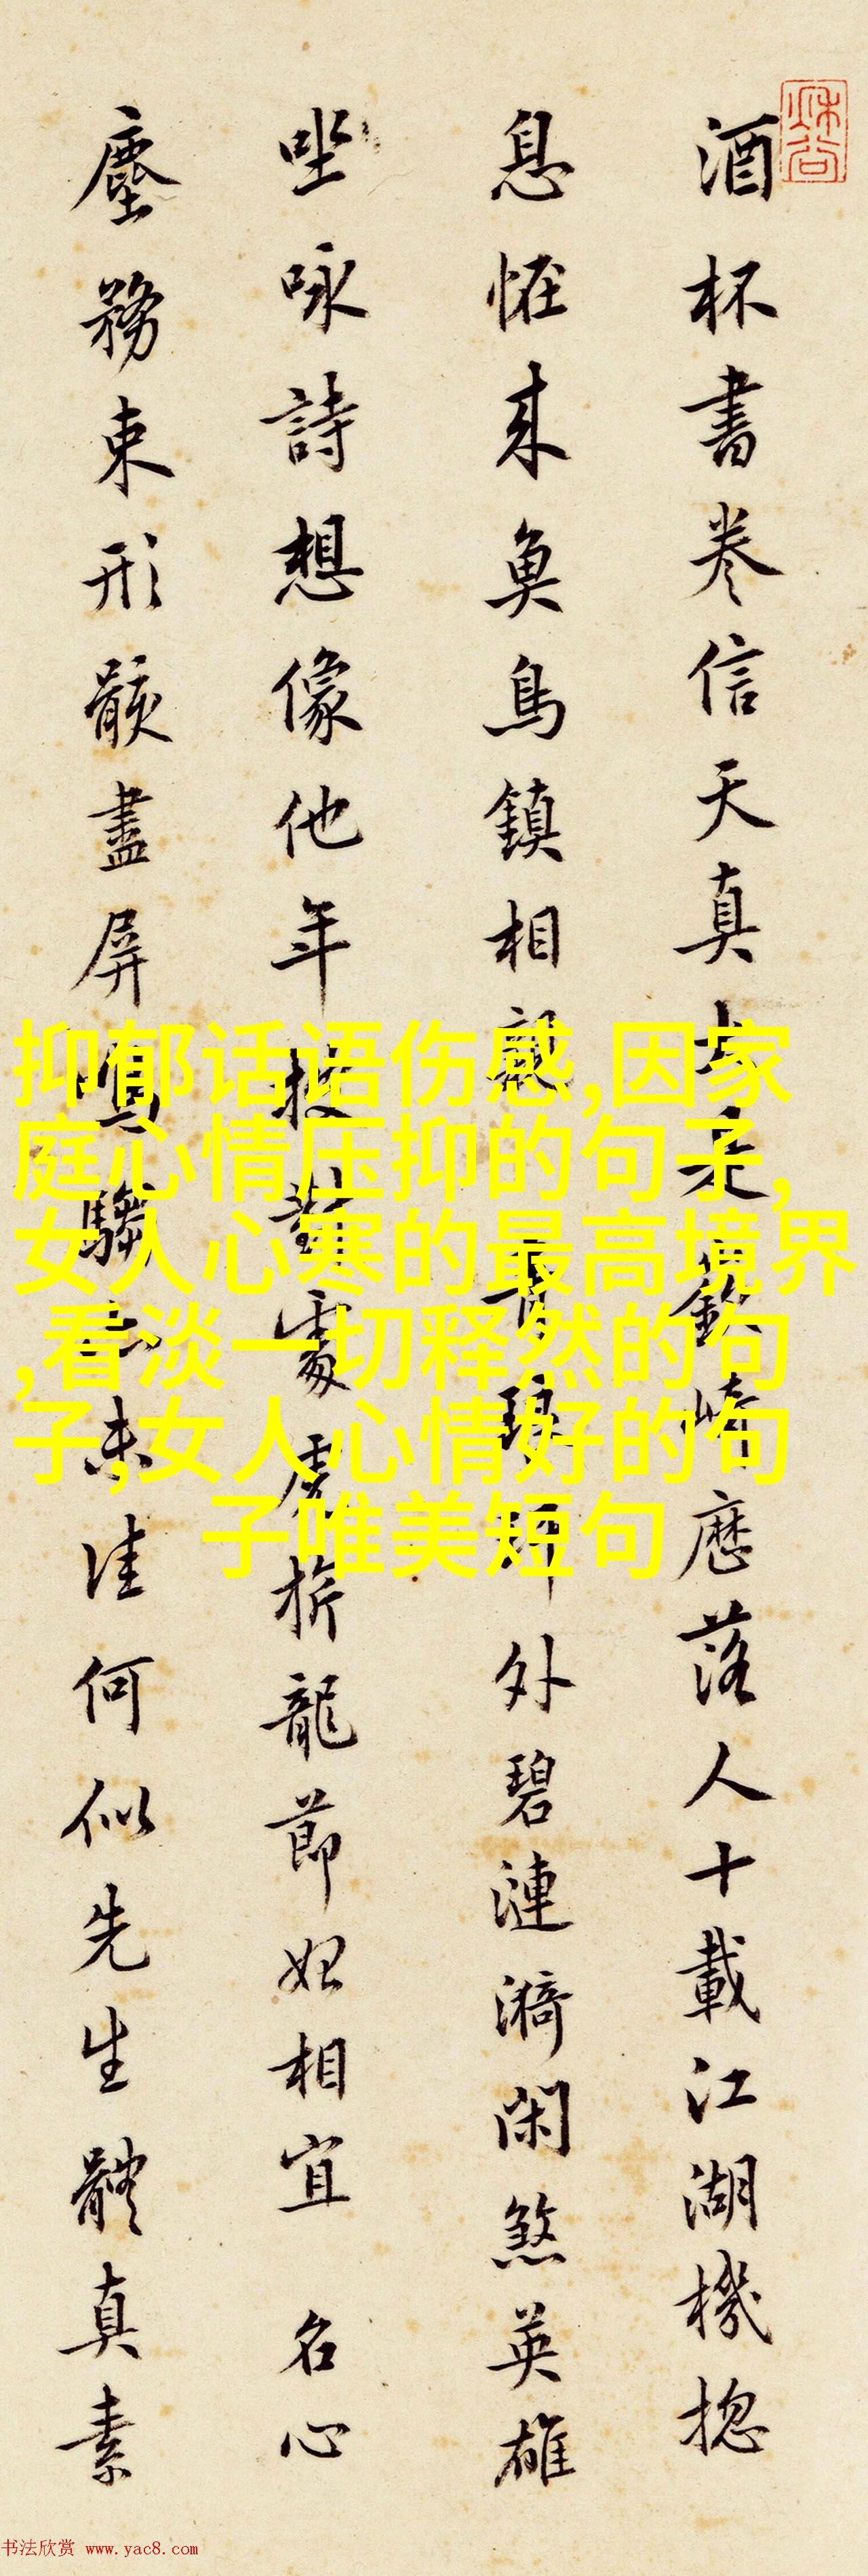 酒杯書卷信天真
崎歷落人十載江湖機
息恠來魚鳥鎮相親
外碧漣漪閑煞英雄
坐咏詩想像他年
龍節
相宜 名心
塵務束形骸盡屏
未佳何似先生體真素
抑郁话语伤感,因家
庭心情压抑的句子,
女人心寒的最高境界
,看淡一切释然的句
子,女人心情好的句
子唯美短句
书法欣赏 www.yac8.com